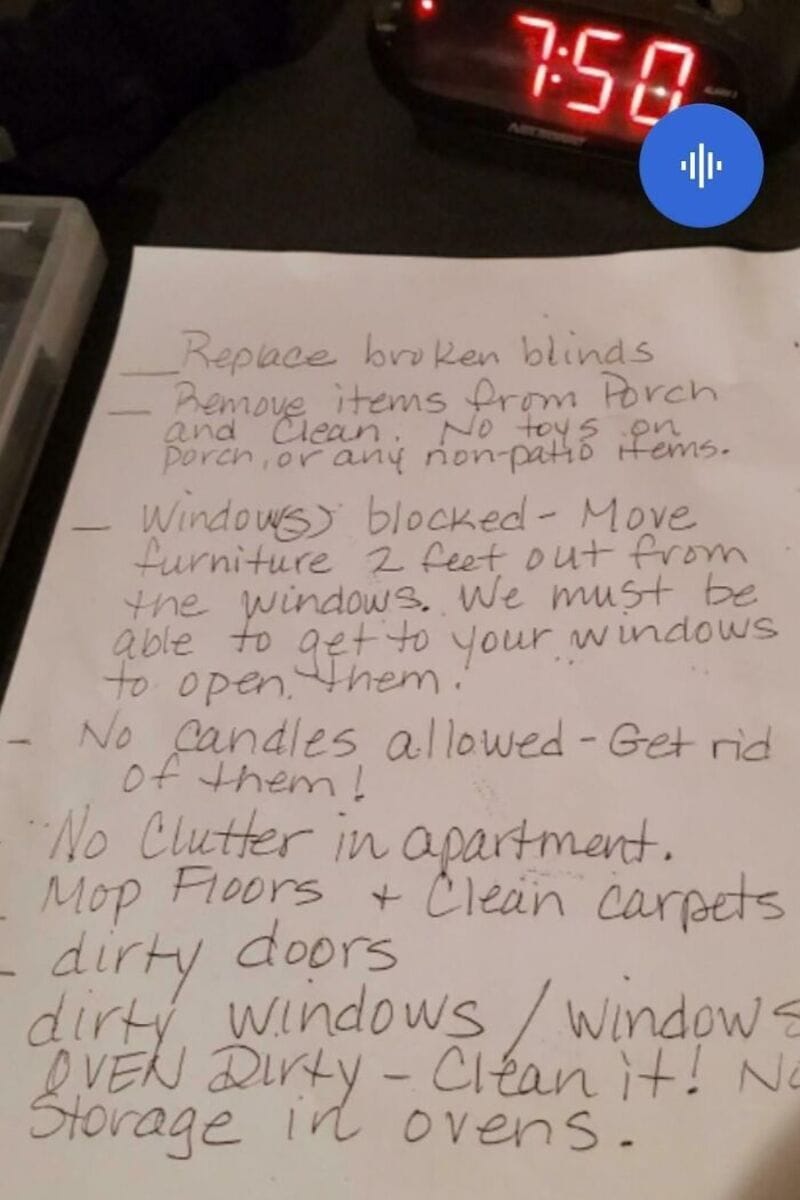 7:50
__ Replace broken blinds
__ Remove items from Porch
and Clean. No toys on
porch, or any non-patio items.
__ Window(s) blocked - Move
furniture 2 feet out from
the windows. We must be
able to get to your windows
to open them.
- No candles allowed - Get rid
of them!
No Clutter in apartment.
Mop Floors + Clean carpets
- dirty doors
dirty windows / window
OVEN Dirty - Clean it! No
Storage in ovens.